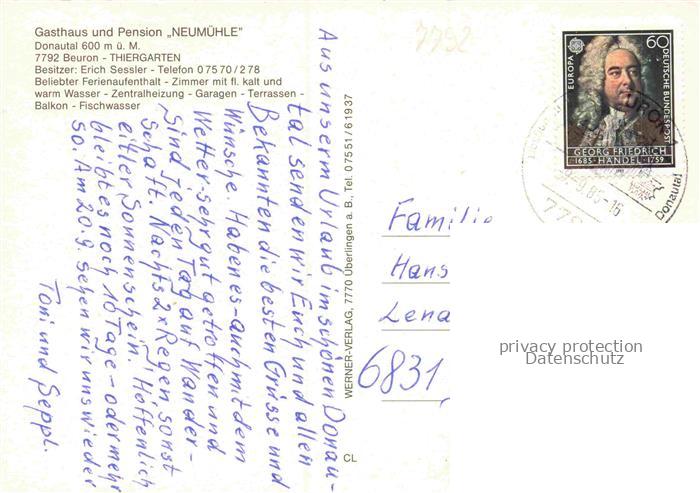 Gasthaus und Pension „NEUMÜHLE"
Donautal 600 m ü. M.
7792 Beuron - THIERGARTEN
Besitzer: Erich Sessler - Telefon 0 75 70 / 2 78
Beliebter Ferienaufenthalt - Zimmer mit fl. kalt und
warm Wasser - Zentralheizung - Garagen - Terrassen -
Balkon - Fischwasser
7792
Aus unserm Urlaub im schönen Donau-
tal senden wir Euch und allen
Bekannten die besten Grüsse und
Wünsche. Haben es auch mit dem
Wetter sehr gut getroffen und
sind jeden Tag auf Wander-
schaft. Nachts 2x Regen, sonst
eitler Sonnenschein. Hoffenlich
bleibt es noch 10 Tage - oder mehr
so. Am 20.9. sehen wir uns wieder
Toni und Seppl.
WERNER-VERLAG, 7770 Überlingen a. B., Tel. 07551/61937
CL
EUROPA
60
DEUTSCHE BUNDESPOST
GEORG FRIEDRICH
1685 · HÄNDEL · 1759
BEURON
9.85-16
Donautal
Familie
Hans
Lena
6831
privacy protection
Datenschutz